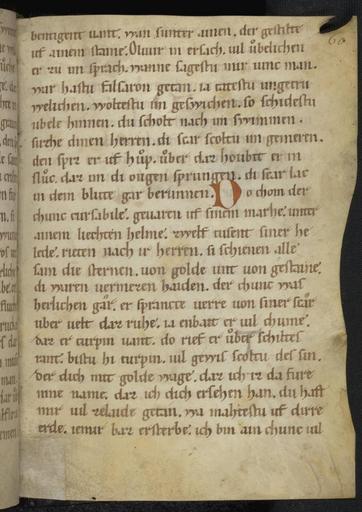 60
bentigent uant. wan sunter ainen. der gestilte
uf ainem staine. Oliuir in ersach. uil ubelichen
er zu im sprach. wanne sagestu mir iunc man.
war hastu filsaron getan. ia tatestu ungetru
welichen. woltestu im geswichen. so schidestu
ubele hinnen. du scholt nach im swimmen.
suche dinen herren. di scar scoltu im gemeren.
den sper er uf hup. uber daz houbet er in
sluc. daz im di ougen sprungen. di scar lac
in dem blute gar berunnen. Do chom der
chunc cursabile. geuaren uf sinem marhe. unter
ainem liechten helme. zwelf tusent siner he
lede. riten nach ir herren. si schienen alle
sam die sternen. uon golde unt uon gestaine.
di waren uermezen haiden. der chunc was
herlichen gar. er sprancte uerre uon siner scar
uber uelt daz ruhe. ia enbait er uil chume.
daz er turpin uant. do rief er ubir schiltes
rant. bistu hi turpin. uil gewis scoltu des sin.
der dich mit golde wage. daz ich iz da fure
nine name. daz ich dich ersehen han. du hast
mir uil zelaide getan. wa mahtestu uf dirre
erde. iemir baz ersterbe. ich bin ain chunc uil